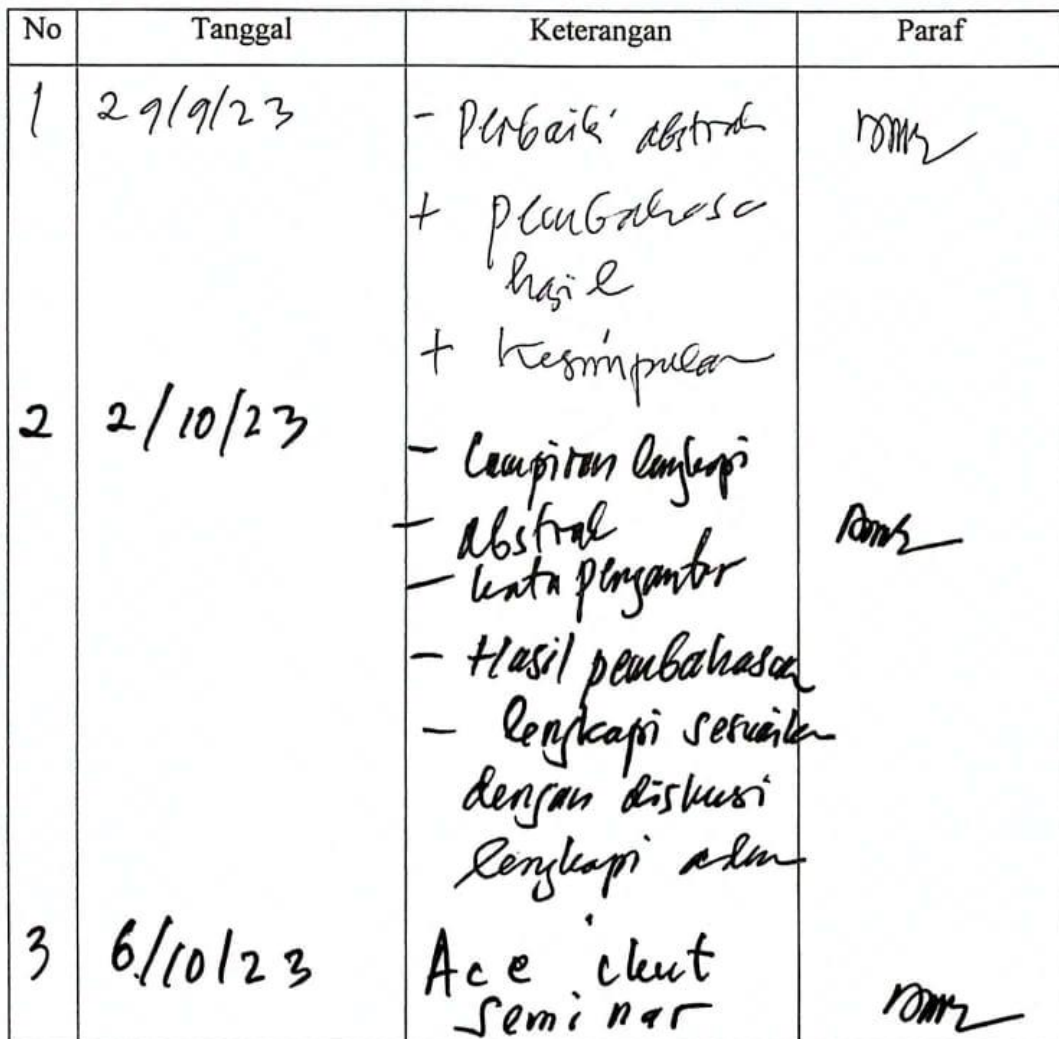 No Tanggal Keterangan Paraf
1 29/9/23 - Perbaiki abstrak
+ pembahasa
hasil
+ Kesimpulan
2 2/10/23
- Lampiran lengkapi
- abstrak
- kata pengantar
- Hasil pembahasan
- lengkapi sesuaikan
dengan diskusi
lengkapi
3 6/10/23 Acc
seminar